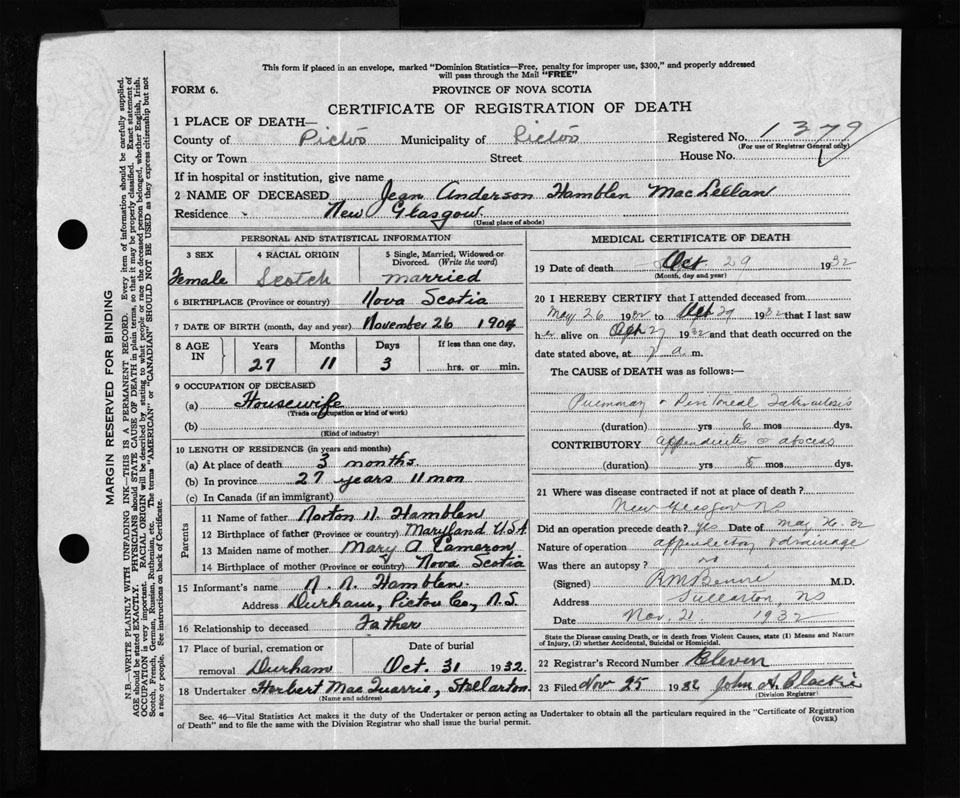 This form if placed in an envelope, marked "Dominion Statistics—Free, penalty for improper use, $300," and properly addressed
will pass through the Mail "FREE"
FORM 6.
PROVINCE OF NOVA SCOTIA
CERTIFICATE OF REGISTRATION OF DEATH
1 PLACE OF DEATH—
County of Pictou Municipality of Pictou Registered No. 1379
(For use of Registrar General only)
City or Town Street House No.
If in hospital or institution, give name
2 NAME OF DECEASED Jean Anderson Hamblen MacLellan
Residence New Glasgow.
(Usual place of abode)
PERSONAL AND STATISTICAL INFORMATION
3 SEX 4 RACIAL ORIGIN 5 Single, Married, Widowed or Divorced. (Write the word)
Female Scotch married
6 BIRTHPLACE (Province or country) Nova Scotia
7 DATE OF BIRTH (month, day and year) November 26 1904
8 AGE IN Years Months Days If less than one day,
27 11 3 hrs. or min.
9 OCCUPATION OF DECEASED
(a) Housewife
(Trade or occupation or kind of work)
(b)
(Kind of industry)
10 LENGTH OF RESIDENCE (in years and months)
(a) At place of death 3 months.
(b) In province 27 years 11 mon
(c) In Canada (if an immigrant)
Parents
11 Name of father Norton N. Hamblen
12 Birthplace of father (Province or country) Maryland U.S.A.
13 Maiden name of mother Mary A Cameron
14 Birthplace of mother (Province or country) Nova Scotia
15 Informant's name N. N. Hamblen.
Address Durham, Pictou Co., N.S.
16 Relationship to deceased Father
17 Place of burial, cremation or removal Durham Date of burial Oct. 31 1932.
18 Undertaker Herbert MacQuarrie, Stellarton
(Name and address)
MEDICAL CERTIFICATE OF DEATH
19 Date of death Oct. 29 1932
(Month, day and year)
20 I HEREBY CERTIFY that I attended deceased from
May 26 1932 to Oct 29 1932 that I last saw
her alive on Oct 27 1932 and that death occurred on the
date stated above, at 7 a. m.
The CAUSE of DEATH was as follows:
Pulmonary & Peritoneal Tuberculosis
(duration) yrs 6 mos dys.
CONTRIBUTORY appendicitis & abscess
(duration) yrs 5 mos. dys.
21 Where was disease contracted if not at place of death?
New Glasgow NS
Did an operation precede death? yes Date of May 26.32
Nature of operation appendectomy & drainage
Was there an autopsy? no
(Signed) M.D.
Address Stellarton, NS
Date Nov. 21 1932
State the Disease causing Death, or in death from Violent Causes, state (1) Means and Nature
of Injury, (2) whether Accidental, Suicidal or Homicidal.
22 Registrar's Record Number Eleven
23 Filed Nov 25 1932 John H. Blackie
(Division Registrar)
Sec. 46—Vital Statistics Act makes it the duty of the Undertaker or person acting as Undertaker to obtain all the particulars required in the "Certificate of Registration
of Death" and to file the same with the Division Registrar who shall issue the burial permit. (OVER)
MARGIN RESERVED FOR BINDING
N.B.—WRITE PLAINLY WITH UNFADING INK—THIS IS A PERMANENT RECORD. Every item of information should be carefully supplied.
AGE should be stated EXACTLY. PHYSICIANS should STATE CAUSE OF DEATH in plain terms, so that it may be properly classified. Exact statement of
OCCUPATION is very important. RACIAL ORIGIN will be described by stating to what people or race the deceased person belonged, whether English, Irish,
Scotch, French, German, Russian, Ruthenian, etc. The terms "AMERICAN" or "CANADIAN" SHOULD NOT BE USED as they express citizenship but not
a race or people. See instructions on back of Certificate.